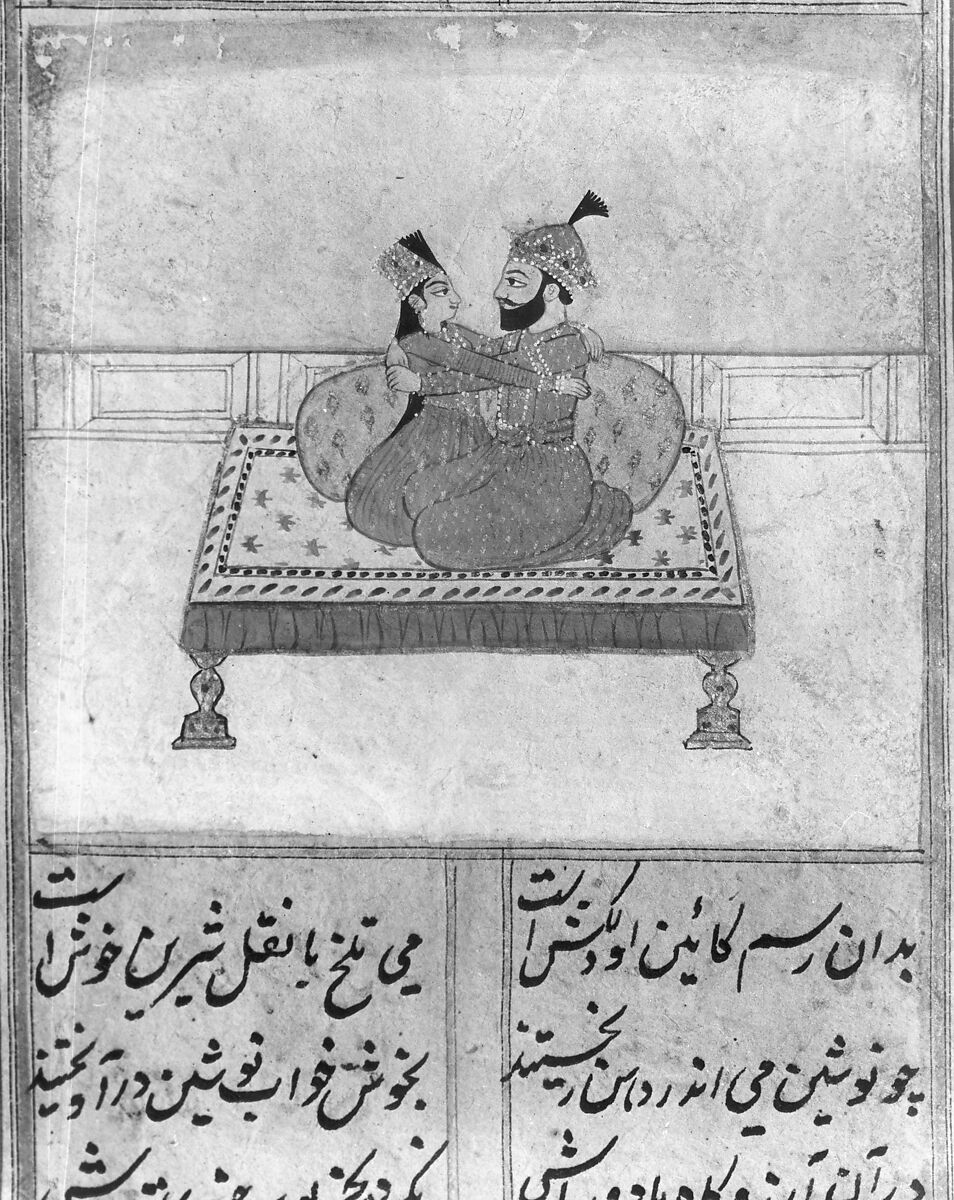 بدان رسم کائین او دلکش است می تلخ با نقل شیرین خوش است
چو نوشین می اندر دهن ریختند بخوش خواب نوشین درآویختند